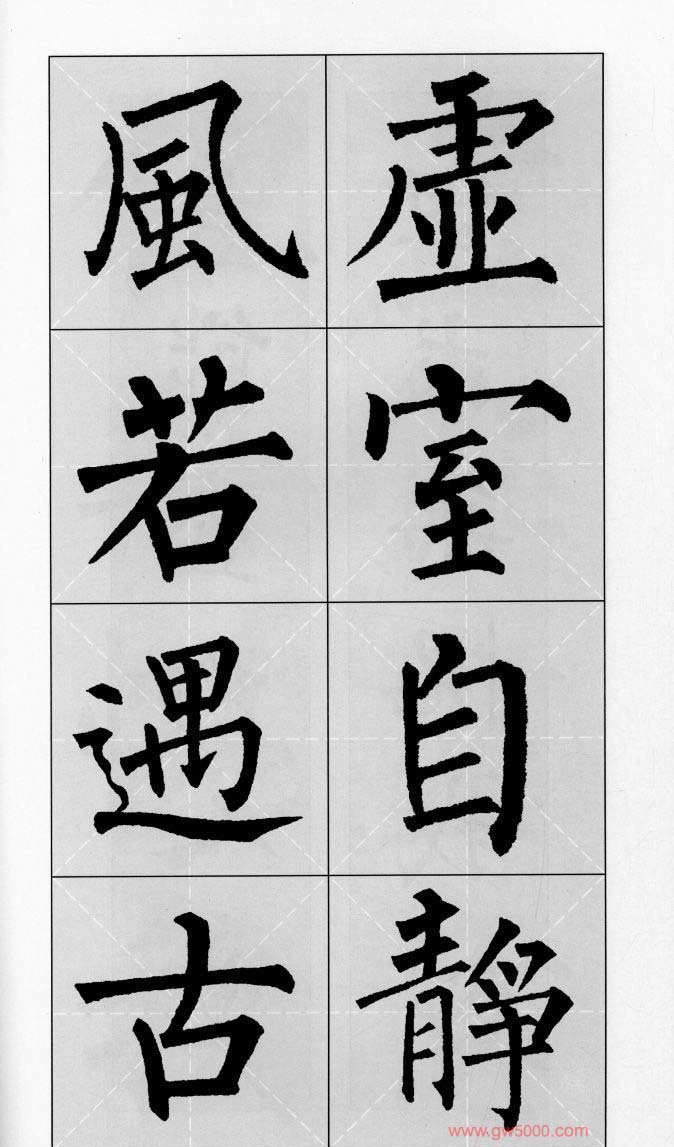 虛室自靜
風若遇古
www.gw5000.com